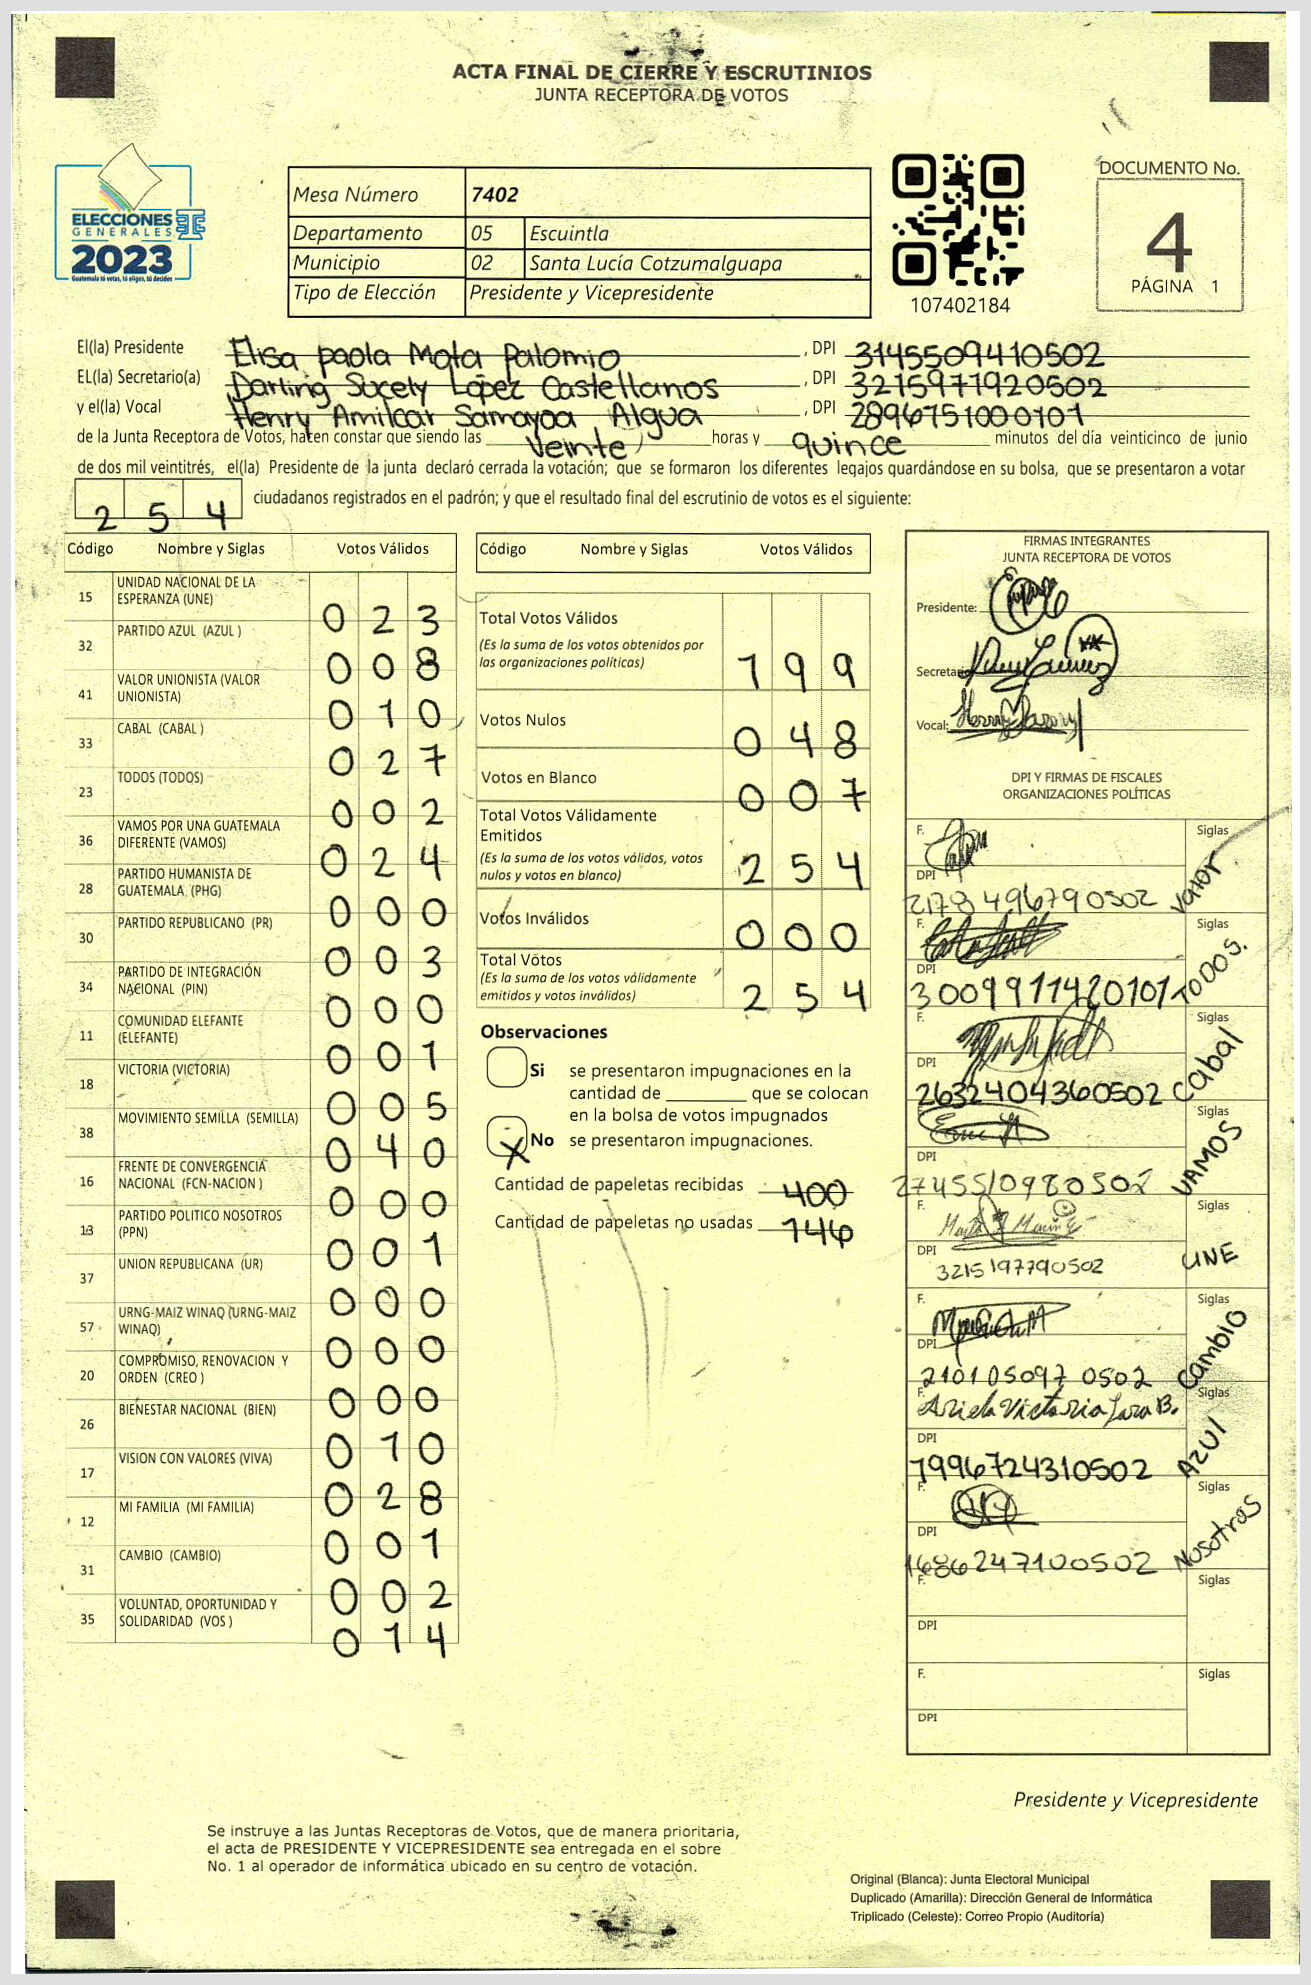 ACTA FINAL DE CIERRE Y ESCRUTINIOS
JUNTA RECEPTORA DE VOTOS
ELECCIONES
GENERALES
2023
Guatemala tú votas, tú eliges, tú decides
Mesa Número 7402
Departamento 05 Escuintla
Municipio 02 Santa Lucía Cotzumalguapa
Tipo de Elección Presidente y Vicepresidente
107402184
DOCUMENTO No.
4
PÁGINA 1
El(la) Presidente Elisa paola Mota Palomo , DPI 3145509410502
EL(la) Secretario(a) Darling Sucely López Castellanos , DPI 3215971920502
y el(la) Vocal Henry Amilcar Samayoa Algua , DPI 2896751000101
de la Junta Receptora de Votos, hacen constar que siendo las Veinte horas y quince minutos del día veinticinco de junio
de dos mil veintitrés, el(la) Presidente de la junta declaró cerrada la votación; que se formaron los diferentes legajos guardándose en su bolsa, que se presentaron a votar
2 5 4 ciudadanos registrados en el padrón; y que el resultado final del escrutinio de votos es el siguiente:
Código Nombre y Siglas Votos Válidos
15 UNIDAD NACIONAL DE LA ESPERANZA (UNE) 0 2 3
32 PARTIDO AZUL (AZUL ) 0 0 8
41 VALOR UNIONISTA (VALOR UNIONISTA) 0 1 0
33 CABAL (CABAL ) 0 2 7
23 TODOS (TODOS) 0 0 2
36 VAMOS POR UNA GUATEMALA DIFERENTE (VAMOS) 0 2 4
28 PARTIDO HUMANISTA DE GUATEMALA (PHG) 0 0 0
30 PARTIDO REPUBLICANO (PR) 0 0 3
34 PARTIDO DE INTEGRACIÓN NACIONAL (PIN) 0 0 0
11 COMUNIDAD ELEFANTE (ELEFANTE) 0 0 1
18 VICTORIA (VICTORIA) 0 0 5
38 MOVIMIENTO SEMILLA (SEMILLA) 0 4 0
16 FRENTE DE CONVERGENCIA NACIONAL (FCN-NACION ) 0 0 0
13 PARTIDO POLITICO NOSOTROS (PPN) 0 0 1
37 UNION REPUBLICANA (UR) 0 0 0
57 URNG-MAIZ WINAQ (URNG-MAIZ WINAQ) 0 0 0
20 COMPROMISO, RENOVACION Y ORDEN (CREO ) 0 0 0
26 BIENESTAR NACIONAL (BIEN) 0 1 0
17 VISION CON VALORES (VIVA) 0 2 8
12 MI FAMILIA (MI FAMILIA) 0 0 1
31 CAMBIO (CAMBIO) 0 0 2
35 VOLUNTAD, OPORTUNIDAD Y SOLIDARIDAD (VOS ) 0 1 4
Código Nombre y Siglas Votos Válidos
Total Votos Válidos
(Es la suma de los votos obtenidos por
las organizaciones políticas) 1 9 9
Votos Nulos 0 4 8
Votos en Blanco 0 0 7
Total Votos Válidamente
Emitidos
(Es la suma de los votos válidos, votos
nulos y votos en blanco) 2 5 4
Votos Inválidos 0 0 0
Total Votos
(Es la suma de los votos válidamente
emitidos y votos inválidos) 2 5 4
Observaciones
Si se presentaron impugnaciones en la
cantidad de ________ que se colocan
en la bolsa de votos impugnados
X No se presentaron impugnaciones.
Cantidad de papeletas recibidas 400
Cantidad de papeletas no usadas 146
FIRMAS INTEGRANTES
JUNTA RECEPTORA DE VOTOS
Presidente:
Secretario
Vocal:
DPI Y FIRMAS DE FISCALES
ORGANIZACIONES POLÍTICAS
F. Siglas
DPI 2178496790502 Valor
F. Siglas
DPI 3009911420101 TODOS.
F. Siglas
DPI 2632404360502 Cabal
F. Siglas
DPI 2745510980502 VAMOS
F. Siglas
DPI 3215197790502 UNE
F. Siglas
DPI 2101050970502 Cambio
F. Ariela Victoria Lara B. Siglas
DPI 1996724310502 AZUl
F. Siglas
DPI 1686247100502 Nosotros
F. Siglas
DPI
F. Siglas
DPI
Presidente y Vicepresidente
Se instruye a las Juntas Receptoras de Votos, que de manera prioritaria,
el acta de PRESIDENTE Y VICEPRESIDENTE sea entregada en el sobre
No. 1 al operador de informática ubicado en su centro de votación.
Original (Blanca): Junta Electoral Municipal
Duplicado (Amarilla): Dirección General de Informática
Triplicado (Celeste): Correo Propio (Auditoría)